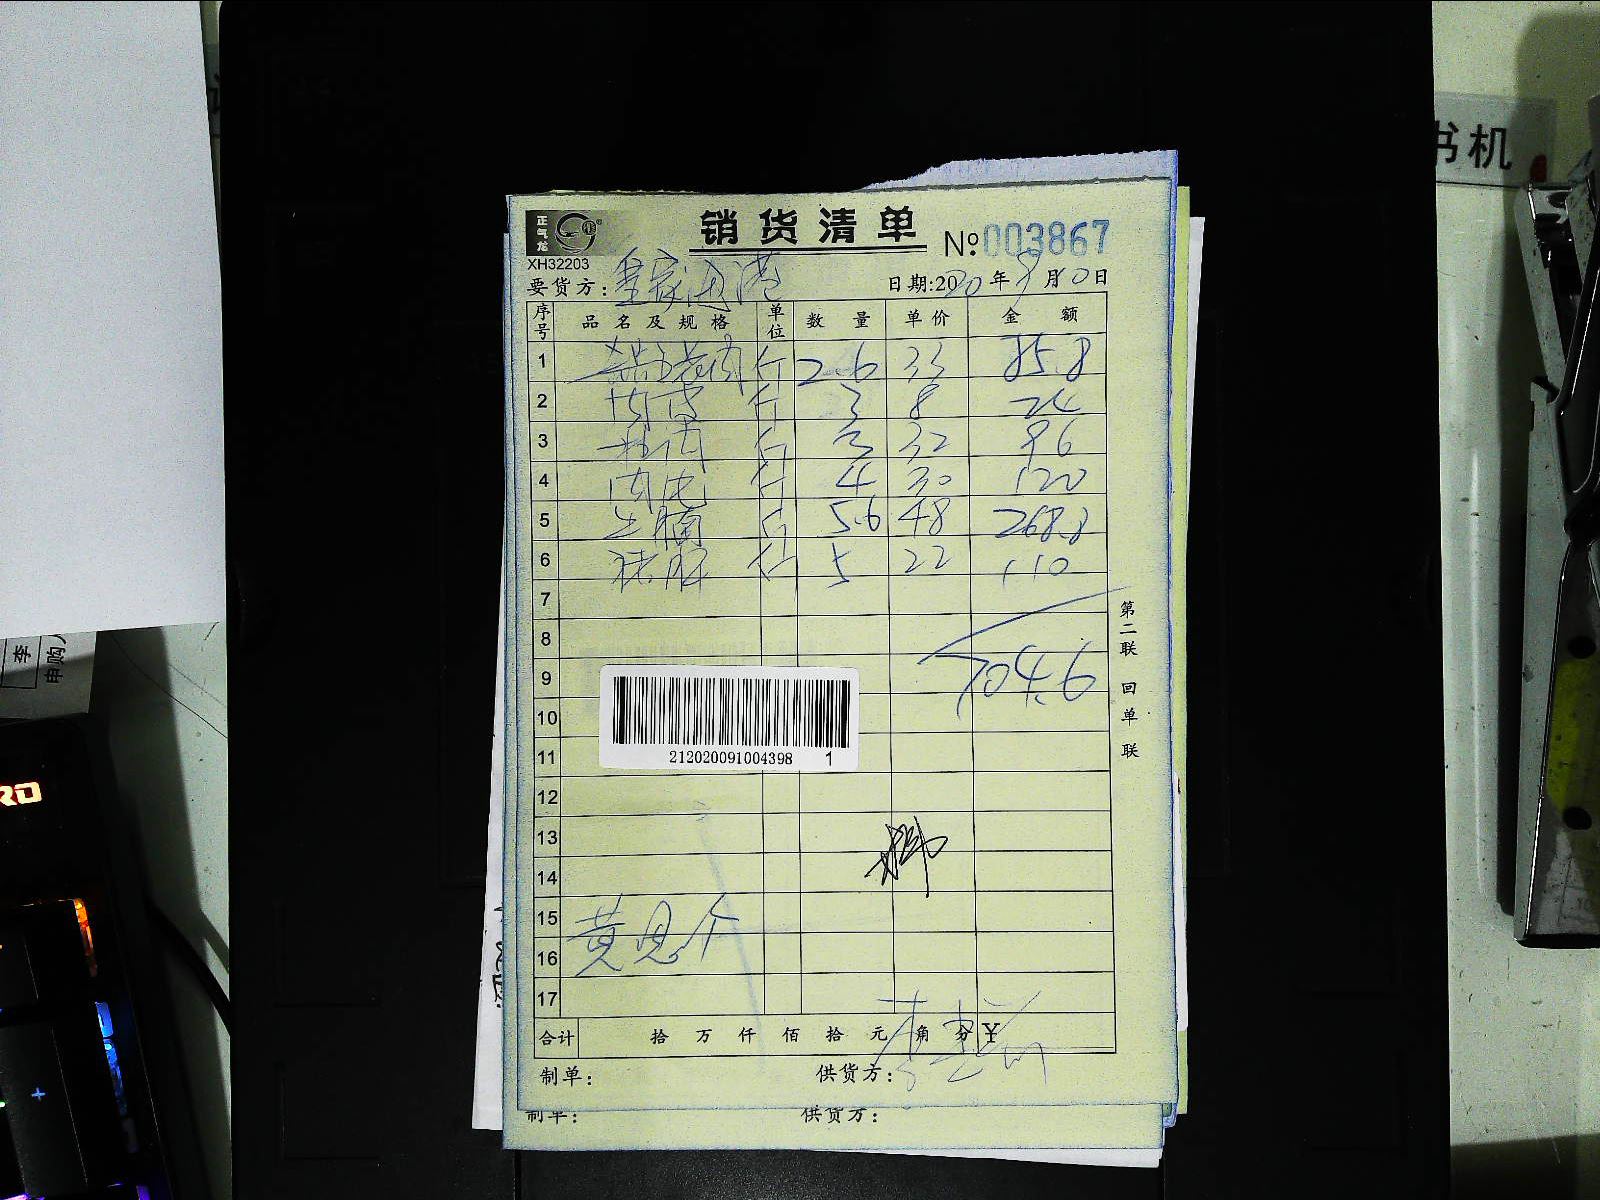 书机
正气龙
销货清单
№003867
XH32203
要货方:皇家迅港
日期:2020年9月10日
序号 品名及规格 单位 数量 单价 金额
1 斤 2.6 33 85.8
2 肉皮 斤 3 8 24
3 斤 3 32 96
4 斤 4 30 120
5 牛腩 斤 5.6 48 268.8
6 猪肝 斤 5 22 110
7
8
9 704.6
10
11
212020091004398 1
12
13
14
15
16
17
合计 拾万仟佰拾元角分 ¥
制单: 供货方:
制单: 供货方:
第二联 回单联
李
申购